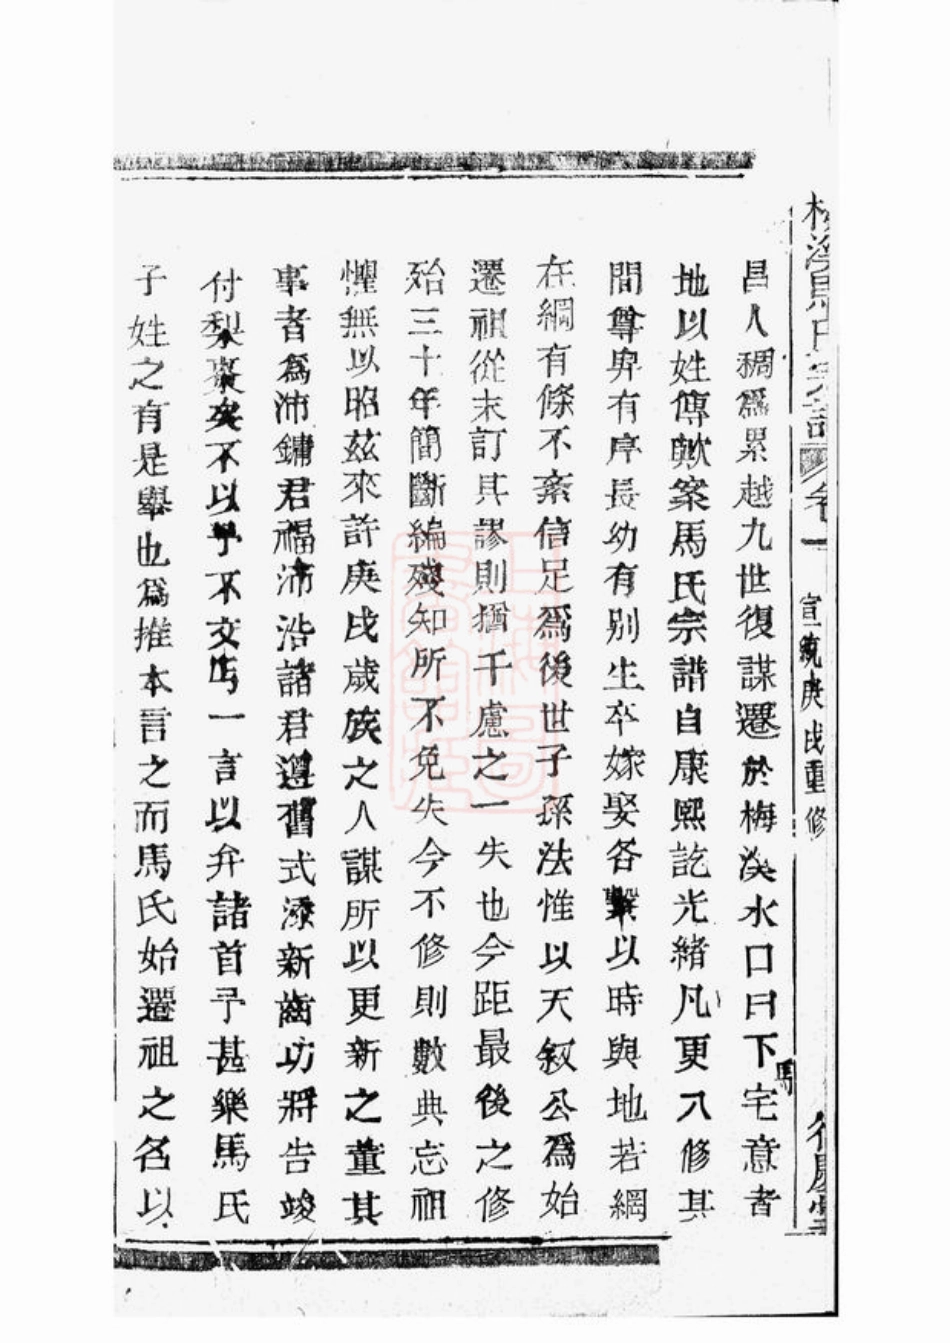 梅溪馬氏宗譜 卷一 宣統庚戌重修
昌人稠爲累越九世復謀遷於梅溪水口曰下馬宅意者
地以姓傳歟案馬氏宗譜自康熙訖光緒凡更八修其
間尊卑有序長幼有别生卒嫁娶各繫以時與地若網
在綱有條不紊信足爲後世子孫法惟以天叙公爲始
遷祖從未訂其謬則猶千慮之一失也今距最後之修
殆三十年簡斷編殘知所不免失今不修則數典忘祖
懼無以昭茲來許庚戌歲族之人謀所以更新之董其
事者爲沛鏞君福沛浩諸君遵舊式添新齒功將告竣
付梨棗矣不以予不文丐一言以弁諸首予甚樂馬氏
子姓之有是舉也爲推本言之而馬氏始遷祖之名以